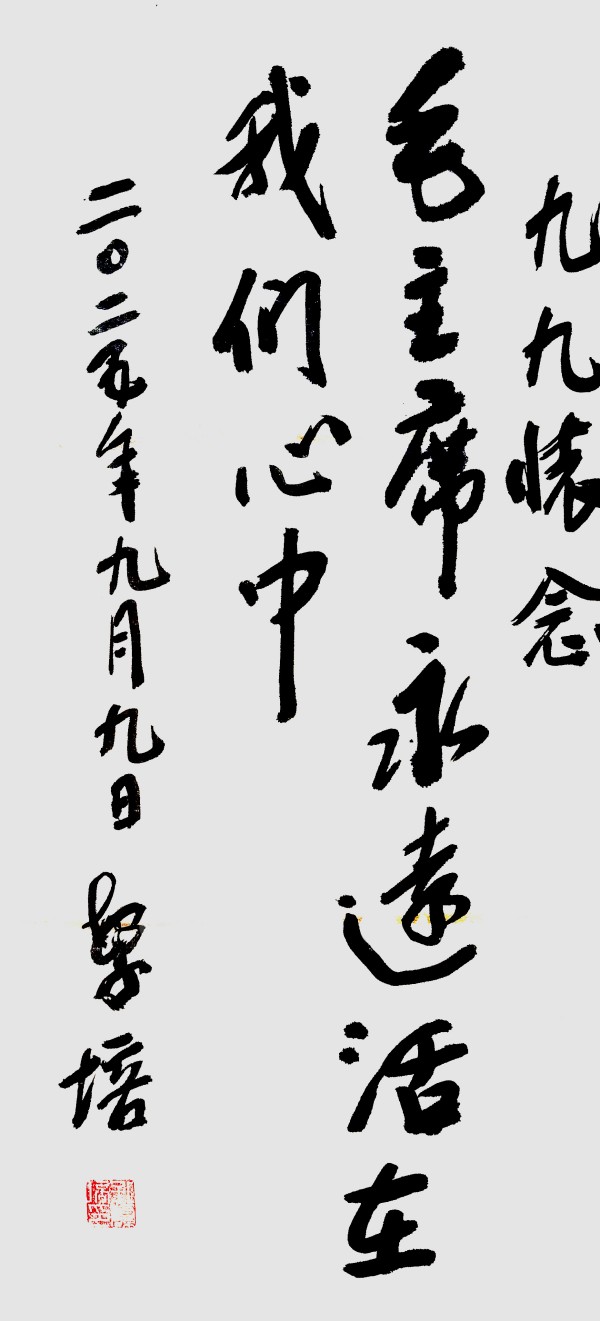 九九懐念
毛主席永遠活在
我们心中
二〇二五年九月九日 黎培